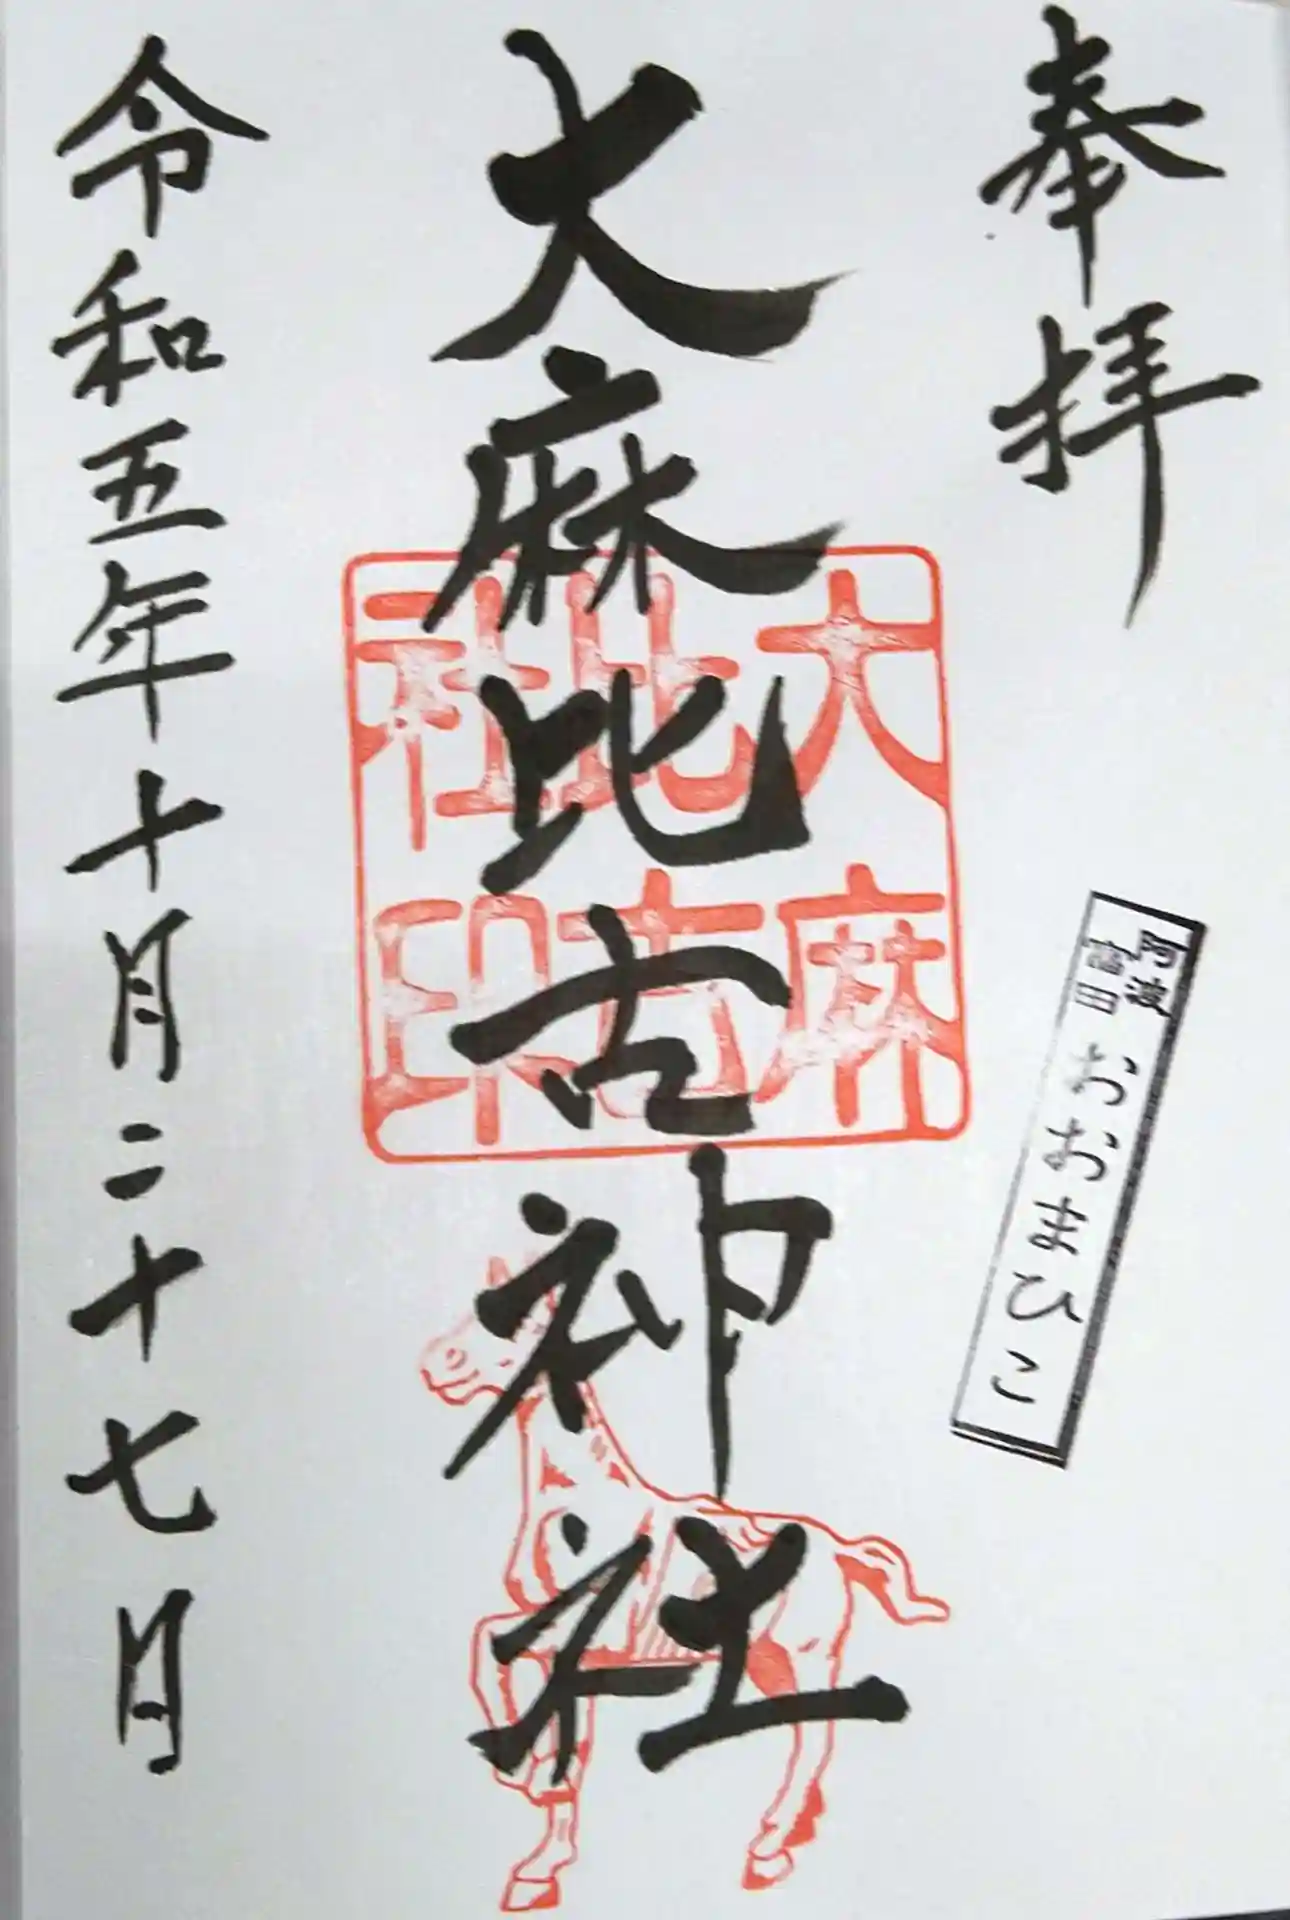 奉拝
大麻比古神社
大麻
比古
社印
阿波
高田
おおまひこ
令和五年十月二十七日